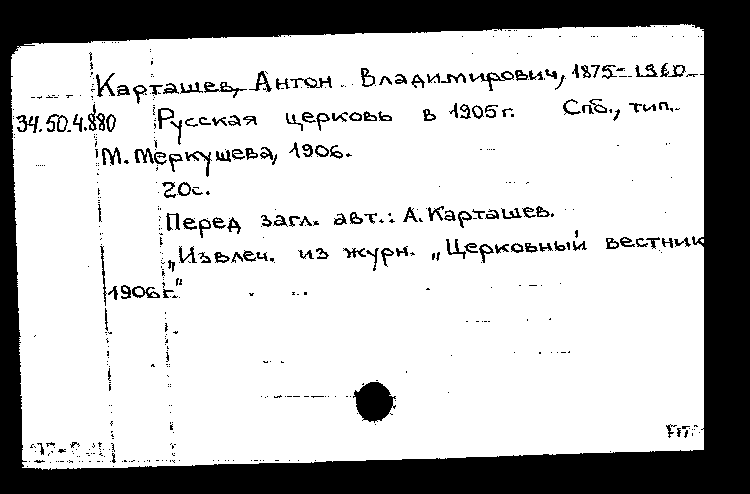 Карташев, Антон Владимирович, 1875-1960
34.50.4.880 Русская церковь в 1905г. Спб., тип.
М. Меркушева, 1906.
20с.
Перед загл. авт.: А. Карташев.
„Извлеч. из журн. „Церковный вестник
1906г."